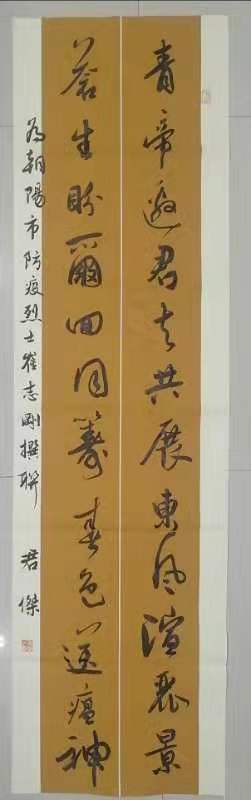 青帝邀君去共展東風渲麗景
蒼生盼爾回同籌春色送瘟神
為朝陽市防疫烈士崔志剛撰聯 君傑